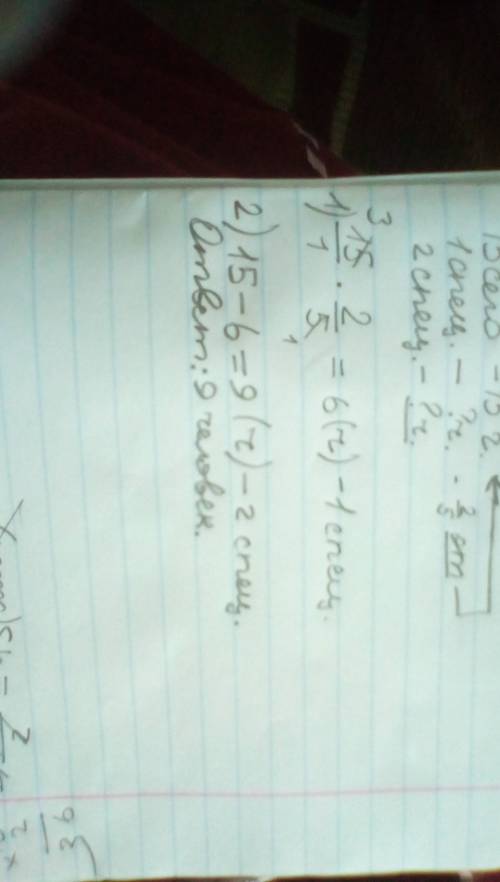 Всего – 15 ч.
1 спец. – ?ч. - 2/5 от
2 спец. – ?ч.
1) 15/1 · 2/5 = 6 (ч) – 1 спец.
3 1
2) 15 – 6 = 9 (ч) – 2 спец.
Ответ: 9 человек.